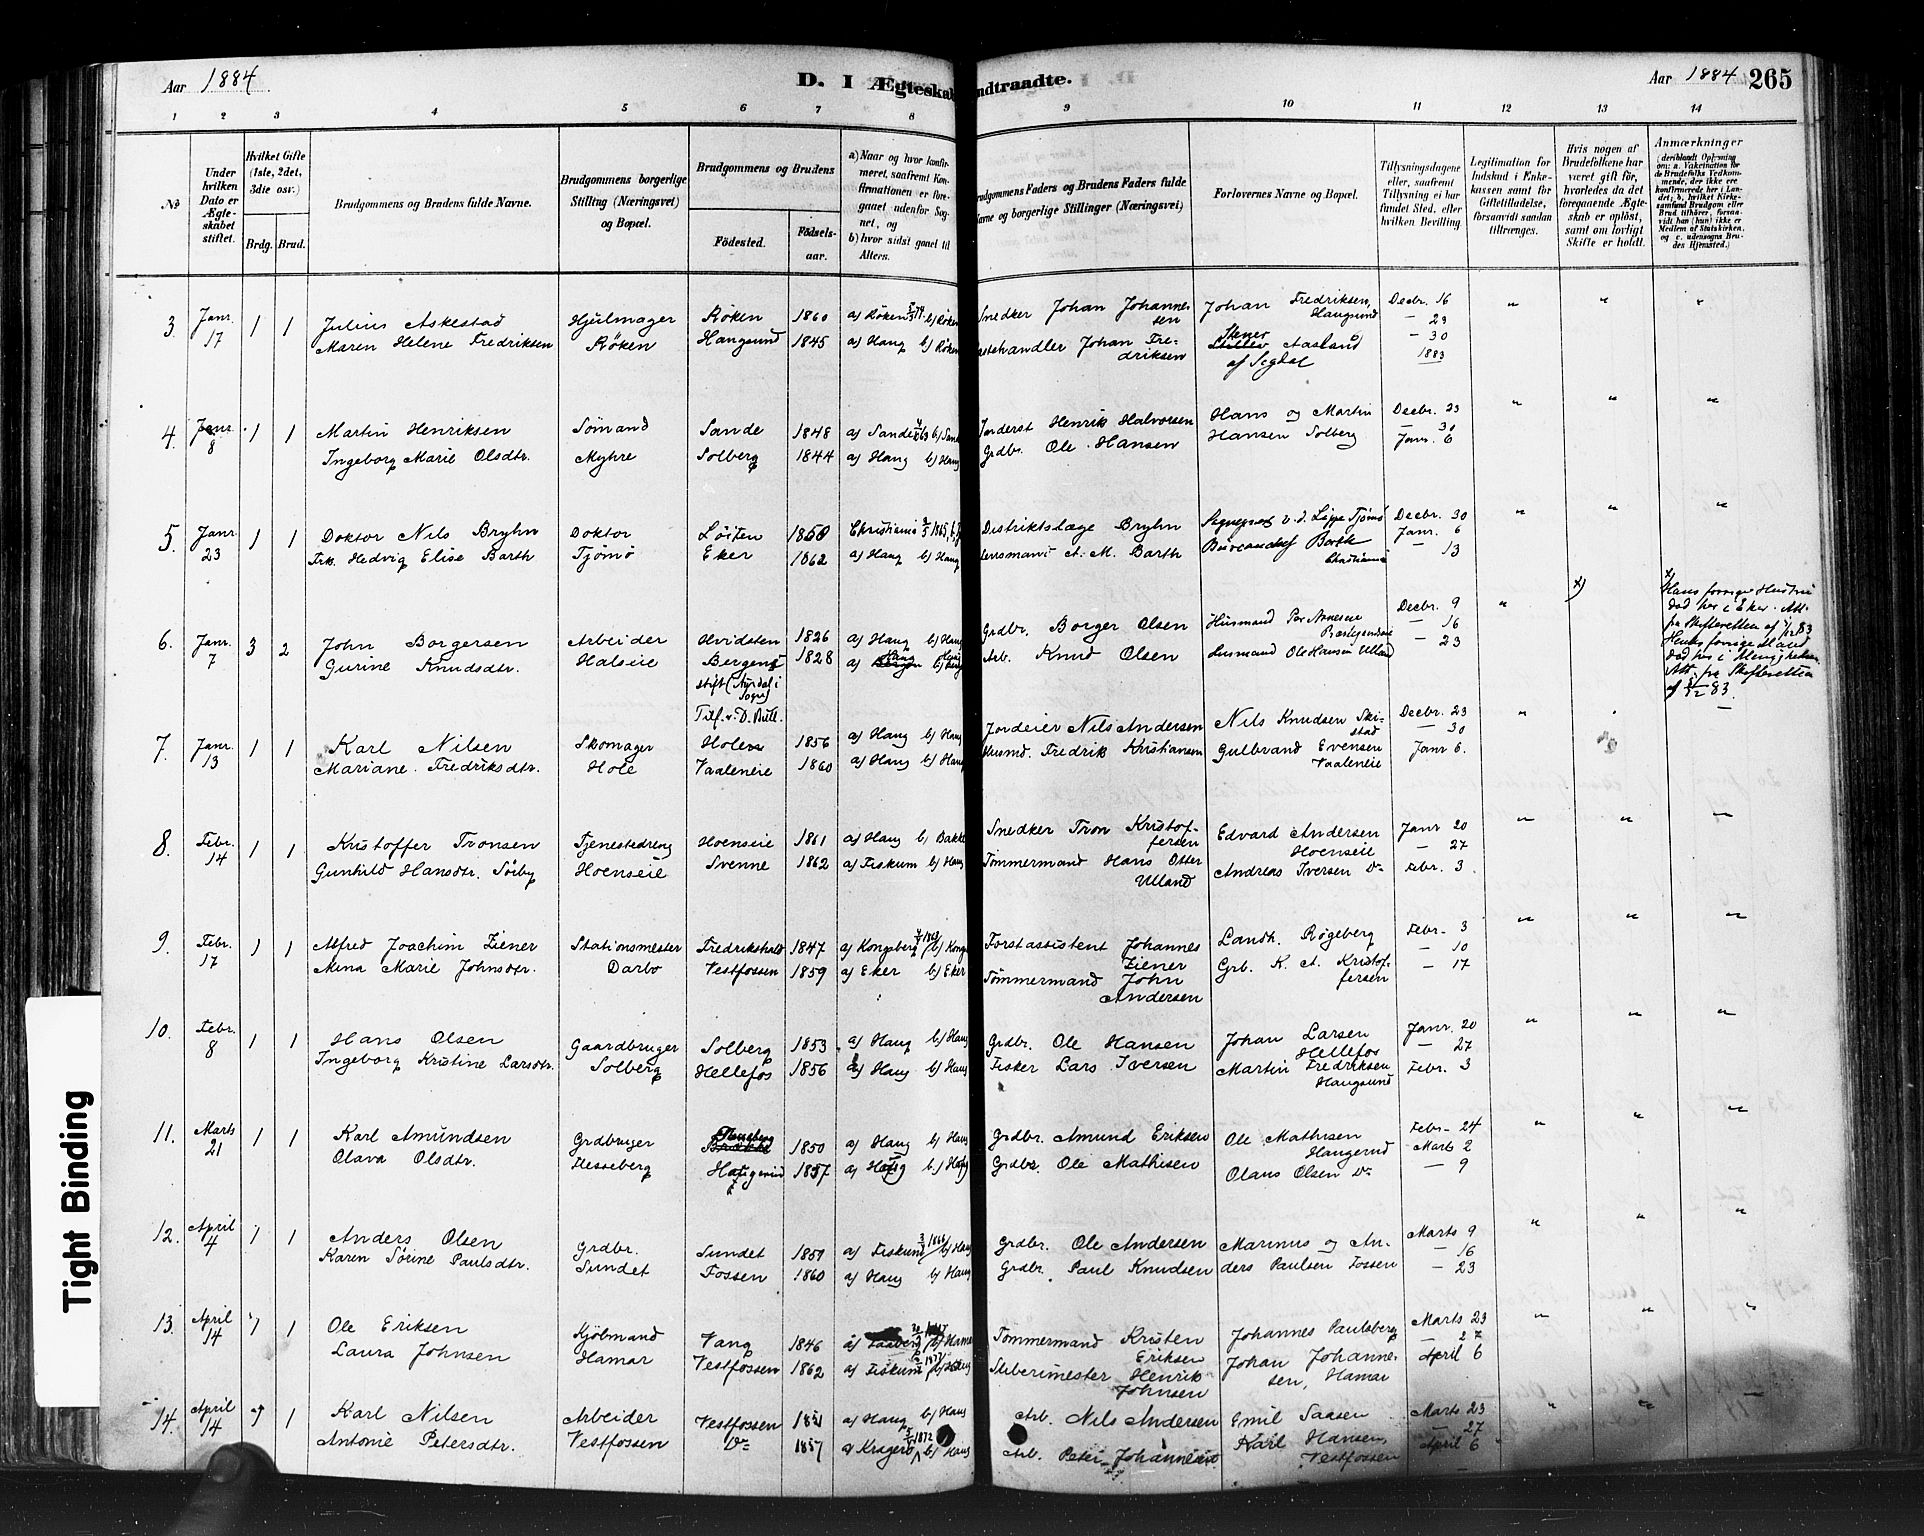 Aar 1884. D. I Ægteskab Indtraadte. Aar 1884 265
1 2 3 4 5 6 7 8 9 10 11 12 13 14
No
Under hvilken Dato er Ægteskabet stiftet.
Hvilket Gifte (1ste, 2det, 3die osv.)
Brdg. Brud.
Brudgommens og Brudens fulde Navne.
Brudgommens borgerlige Stilling (Næringsvei) og Bopæl.
Brudgommens og Brudens
Fødested. Fødsels-aar.
a) Naar og hvor konfirmeret, saafremt Konfirmationen er foregaaet udenfor Sognet, og
b) hvor sidst gaaet til Alters.
Brudgommens Faders og Brudens Faders fulde Navne og borgerlige Stillinger (Næringsvei)
Forlovernes Navne og Bopæl.
Tillysningsdagene eller, saafremt Tillysning ei har fundet Sted, efter hvilken Bevilling.
Legitimation for Indskud i Enkekassen samt for Giftetilladelse, forsaavidt saadan tiltrænges.
Hvis nogen af Brudefolkene har været gift før, hvorledes da det foregaaende Ægteskab er opløst, samt om lovligt Skifte er holdt.
Anmærkninger
3 Janr. 17 1 1 Julius Askestad Hjulmager Røken 1860 a) Røken b) Røken Snedker Johan Johannesen Johan Fredriksen, Haugsund Decbr. 16 — 23
Maren Helene Fredriksen Røken Haugsund 1845 a) Haug b) Røken Johan Fredriksen Stener Aasland af Sigdal — 30 1883
4. Janr. 8 1 1 Martin Henriksen Sømand Sande 1848 a) Sande b) Sande Inderst Henrik Halvorsen Hans og Martin Decbr. 23 — 30
Ingeborg Marie Olsdtr. Myhre Solberg 1844 a) Haug b) Haug Grdbr. Ole Hansen Hansen Solberg Janr. 6
5. Janr. 23 1 1 Doktor Nils Bryhn Doktor Løiten 1850 Christiania Distriktslæge Bryhn Sognepræst v. d. Lippe Tjømø Decbr. 30 Janr. 6
Frk. Hedvig Elise Barth Tjømø Eker 1862 a) Haug b) Haug Lensmand A. M. Barth Bureauchef Barth Christiania — 13
6. Janr. 7 3 2 John Borgersen Arbeider Hvidsten 1826 a) Haug b) Haug Grdbr. Borger Olsen Husmand Per Decbr. 9 — 16 x)
Gurine Knudsdtr. Halseie Bergens stift (Aurdal i Sogn) Tilf. v. D. Butt. 1828 a) Haug b) Haug Arb. Knud Olsen Husmand Ole Hansen Ulland — 23
x) Hans forrige Hustru død her i Eker. Att. fra Skifteretten af 83
Hendes forrige Mand død her i Menigheden. Att. fra Skifteretten af 5/12 83.
7. Janr. 13 1 1 Karl Nilsen Skomager Holeeie 1856 a) Haug b) Haug Jordeier Nils Andersen Nils Knudsen Skistad Decbr. 23 — 30
Mariane Fredriksdtr. Hole Vaaleneie 1860 a) Haug b) Haug Husmd. Fredrik Kristiansen Gulbrand Evensen Vaaleneie Janr 6.
8. Febr. 14 1 1 Kristoffer Tronsen Tjenestedreng Hoenseie 1861 a) Haug b) Bakke Snedker Tron Kristoffersen Edvard Andersen Hoenseie Janr 20 — 27
Gunhild Hansdtr. Søiby Hoenseie Svenne 1862 a) Fiskum b) Haug Tømmermand Hans Otter Ulland Andreas Iversen Do Febr. 3
9. Febr. 17 1 1 Alfred Joachim Ziener Stationsmester Fredrikshald 1847 a) Kongsberg b) Kongsb Forstassistent Johannes Ziener Landh. Røgeberg Febr. 3 — 10
Mina Marie Johnsdtr. Darbo Vestfossen 1859 a) Eker b) Eker Tømmermand John Andersen Grb. K. A. Kristoffersen — 17
10. Febr. 8 1 1 Hans Olsen Gaardbruger Solberg 1853 a) Haug b) Haug Grdbr. Ole Hansen Johan Larsen Hellefos Janr. 20 — 27
Ingeborg Kristine Larsdtr. Solberg Hellefos 1856 a) Haug b) Haug Fisker Lars Iversen Martin Fredriksen Haugsund Febr. 3
11. Marts 21 1 1 Karl Amundsen Grdbruger Flesseberg 1850 a) Haug b) Haug Grdbr. Amund Eriksen Ole Mathisen Haugerud Febr. 24 Marts 2
Olava Olsdtr. Flesseberg Haugerud 1857 a) Haug b) Haug Grdbr. Ole Mathisen Olaus Olsen Do — 9
12. April 4 1 1 Anders Olsen Grdbr. Sundet 1851 a) Fiskum b) Haug Grdbr. Ole Andersen Marinus og An- Marts 9 — 16
Karen Sørine Paulsdtr. Sundet Fossen 1860 a) Haug b) Haug Grdbr. Paul Knudsen ders Paulsen Fossen — 23
13. April 14 1 1 Ole Eriksen Kjøbmand Vang 1846 b) Hamar Tømmermand Kristen Eriksen Johannes Paulsberg Marts 23 — 27
Laura Johnsen Hamar Vestfossen 1862 a) Fiskum b) Haug Sliberimester Henrik Johnsen Johan Johannesen, Hamar April 6
14. April 14 1 1 Karl Nilsen Arbeider Vestfossen 1851 a) Haug b) Haug Arb. Nils Andersen Emil Saasen Marts 23 27
Antonie Petersdtr. Vestfossen Do 1857 a) Kragerø 1872 b) Haug Arb. Peter Johannesen Karl Hansen, Vestfossen April 6
Tight Binding